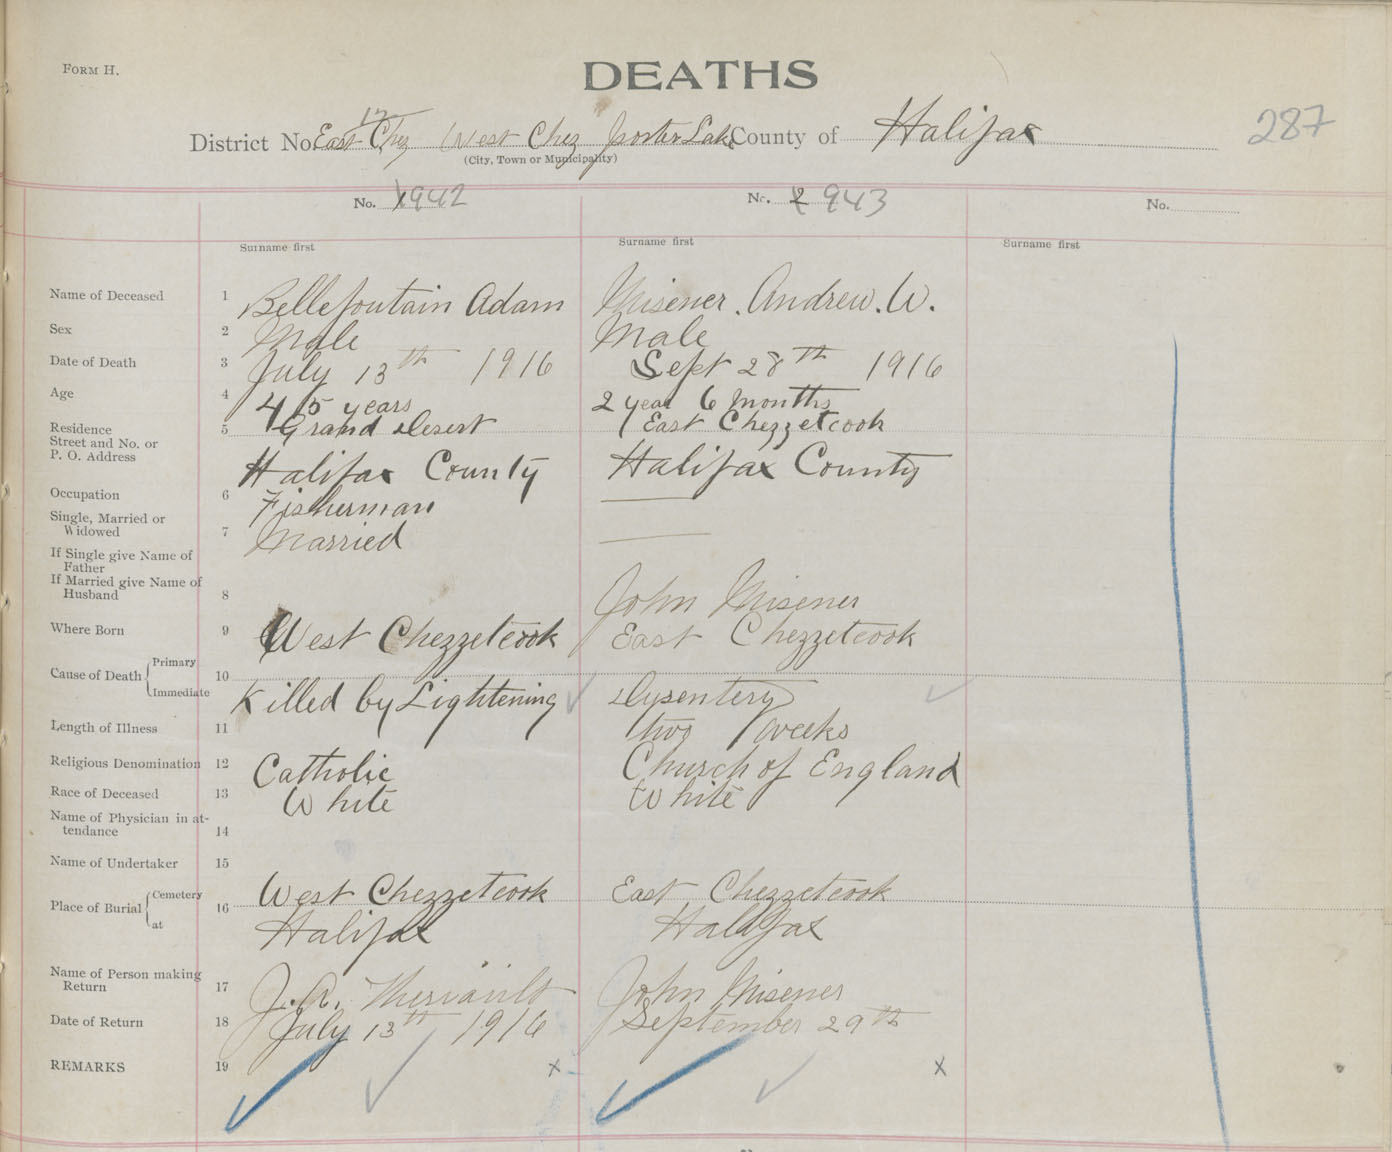 FORM H.
DEATHS
287
12
District No. East Chez West Chez Porter Lake County of Halifax
(City, Town or Municipality)
No. 1 942
No. 2 943
No.
Surname first
Surname first
Surname first
Name of Deceased 1 Bellefontain Adam Misener. Andrew. W.
Sex 2 Male Male
Date of Death 3 July 13th 1916 Sept 28th 1916
Age 4 45 years 2 year 6 months
Residence 5 Grand Desert East Chezzetcook
Street and No. or
P. O. Address Halifax County Halifax County
Occupation 6 Fisherman
Single, Married or
Widowed 7 Married
If Single give Name of
Father
If Married give Name of
Husband 8 John Misener
Where Born 9 West Chezzetcook East Chezzetcook
Cause of Death { Primary 10
Immediate Killed by Lightening Dysentery
Length of Illness 11 two weeks
Religious Denomination 12 Catholic Church of England
Race of Deceased 13 White White
Name of Physician in at-
tendance 14
Name of Undertaker 15
Place of Burial { Cemetery 16 West Chezzetcook East Chezzetcook
at Halifax Halifax
Name of Person making
Return 17 J. A. Theriault John Misener
Date of Return 18 July 13th 1916 September 29th
REMARKS 19 x x